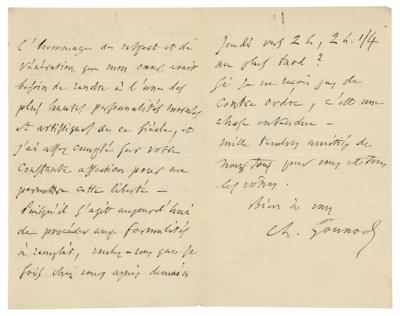 l'hommage de respect et de
vénération que mon cœur avait
besoin de rendre à l'une des
plus hautes personnalités morales
et artistiques de ce siècle, et
j'ai assez compté sur votre
constante affection pour me
permettre cette liberté —
Puisqu'il s'agit aujourd'hui
de procéder aux formalités
à remplir, voulez-vous que je
sois chez vous après demain
Jeudi vers 2 h, 2 h. 1/4
au plus tard ?
Si je ne reçois pas de
contre ordre, c'est une
chose entendue —
mille tendres amitiés de
nous tous pour vous et tous
les vôtres.
Bien à vous
Ch. Gounod